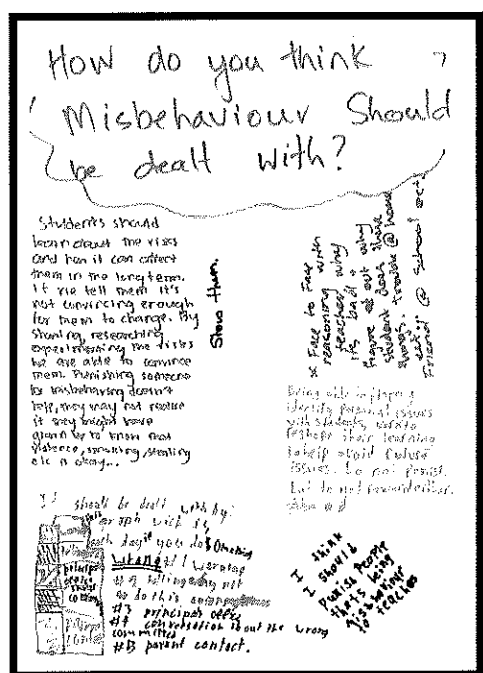 How do you think
Misbehaviour Should
be dealt with?
Students should
learn about the risks
and how it can affect
them in the long term.
If we tell them it's
not convincing enough
for them to change. By
showing, researching
experimenting the risks
we are able to convince
them. Punishing someone
for misbehaving doesn't
help, they may not realise
it they might have
grown up to know that
violence, smoking, stealing
etc is okay...
Show them.
Face to Face with
reasoning with
teacher why
it's bad +
Figure out why
student does these
things. Trouble @ home
Friend @ School ect.
Being able to
identify personal issues
with students, work to
reshape their learning
to help avoid future
issues. Do not punish,
but do not
should be dealt with by:
graph with is
each day if you do something
wrong #1 warning
#2 telling
to do this
#3 principals office
#4 conversation about the wrong
committed
#5 parent contact.
I think
I should
Punish People
thats being
Misbehaviour
to teaches